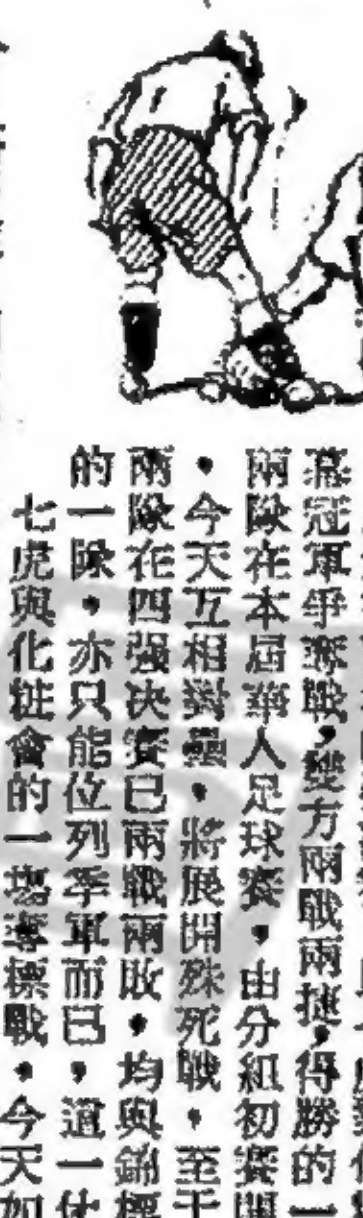 冠軍爭奪戰，雙方兩戰兩捷，得勝的一
兩隊在本屆華人足球賽，由分組初賽開
，今天互相對壘，將展開殊死戰，至于
兩隊在四强決賽已兩戰兩敗，均與錦標
的一隊，亦只能位列季軍而已，這一
七虎與化粧會的一塲奪標戰，今天如